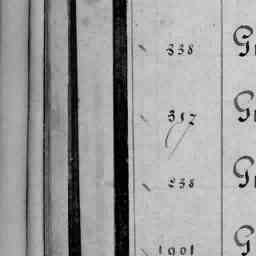 338 G
312 G
238 G
1901 G